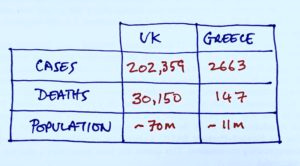 UK GREECE
CASES 202,359 2663
DEATHS 30,150 147
POPULATION ~70m ~11m